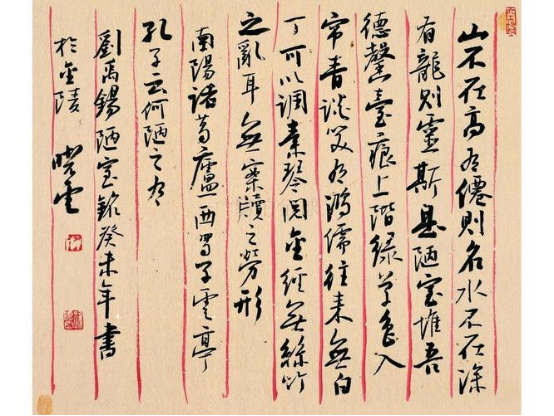 山不在高有僊則名水不在深
有龍則靈斯是陋室惟吾
德馨苔痕上階綠草色入
帘青談笑有鴻儒往來無白
丁可以調素琴閱金經無絲竹
之亂耳無案牘之勞形
南陽諸葛廬西蜀子雲亭
孔子云何陋之有
劉禹錫陋室銘癸未年書
於金陵 曉雲